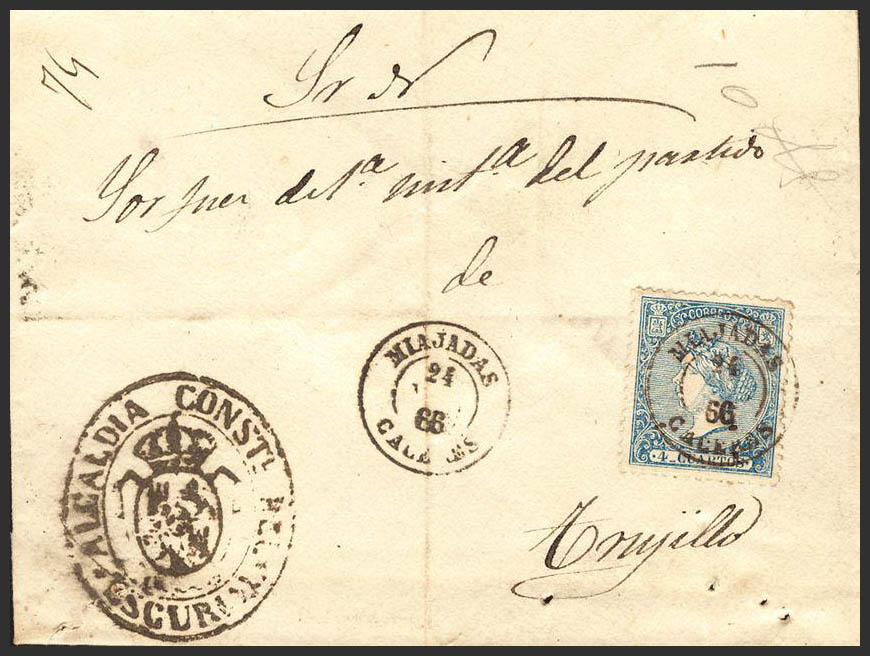 74
Sr D
Sor Juez de 1ª insta del partido
de
CORREOS
MIAJADAS
24
66
CACERES
4 CUARTOS
MIAJADAS
24
66
CACERES
ALCALDIA CONSTL
Trujillo